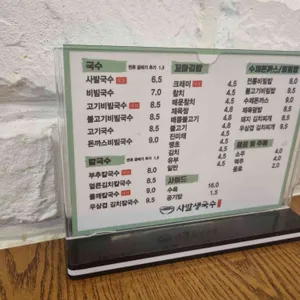 국수 면류 곱빼기 추가 1.5
사발국수 6.5
비빔국수 7.0
고기비빔국수 8.5
불고기비빔국수 8.5
고기국수 8.5
돈까스비빔국수 9.0
칼국수 면류 곱빼기 추가 1.5
부추칼국수 8.0
얼큰김치칼국수 8.5
들깨칼국수 9.0
우삼겹 김치칼국수 9.5
꼬마김밥
크래미 4.5
참치 4.5
매운참치 4.5
제육쌈 4.8
매콤불고기 4.8
불고기 4.8
진미채 4.5
땡초 4.5
김치 4.5
유부 4.5
일반 4.5
사이드
수육 16.0
공기밥 1.5
수제돈까스/비빔밥
전통비빔밥 8.0
불고기비빔밥 8.5
수제돈까스
제육덮밥
돼지 김치찌개
우삼겹 김치찌개
음료 및 주류
소주 4.0
맥주 4.0
음료 2.0
사발생국수